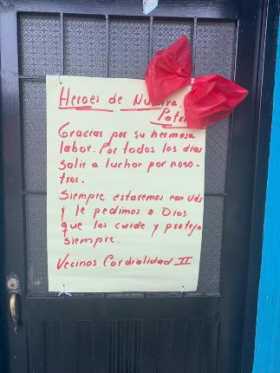 Heroes de Nuestra
Patria
Gracias por su hermosa
labor. Por todos los dias
salir a luchar por noso-
tros.
Siempre estaremos con Uds
y le pedimos a Dios
que los cuide y proteja
siempre.
Vecinos Cordialidad II